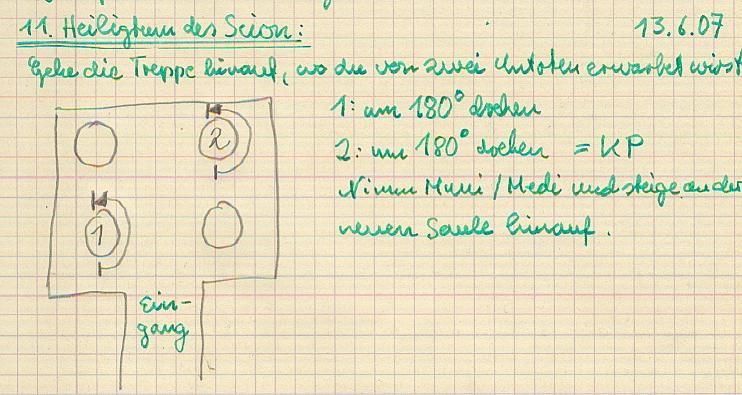 11. Heiligtum des Scion:
13.6.07
Gehe die Treppe hinauf, wo du von zwei Untoten erwartet wirst
1: um 180° drehen
2: um 180° drehen = KP
Nimm Muni / Medi und steige an der
neuen Säule hinauf.
2
1
Ein-
gang